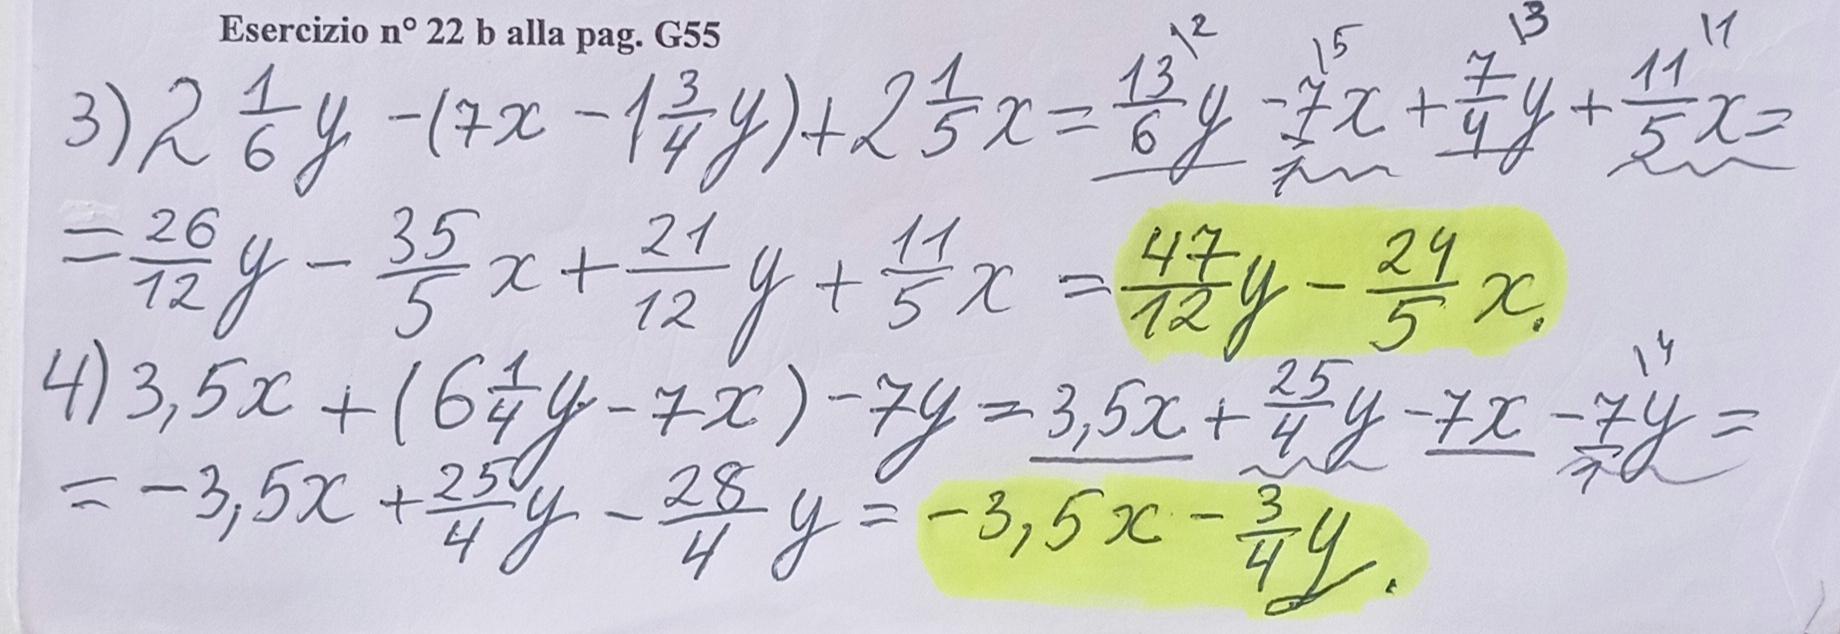 Esercizio n° 22 b alla pag. G55
3) 2 1/6 y - (7x - 1 3/4 y) + 2 1/5 x = 13/6 \2 y - 7/1 \5 x + 7/4 \3 y + 11/5 \1 x =
= 26/12 y - 35/5 x + 21/12 y + 11/5 x = 47/12 y - 24/5 x.
4) 3,5x + (6 1/4 y - 7x) - 7y = 3,5x + 25/4 y - 7x - 7/1 \4 y =
= -3,5x + 25/4 y - 28/4 y = -3,5x - 3/4 y.